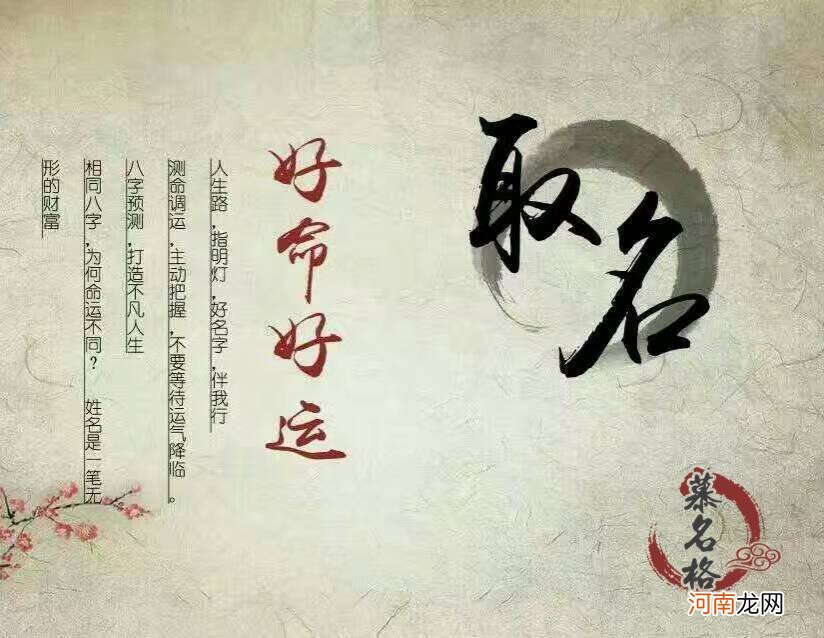 取名
好命好运
人生路,指明灯,好名字,伴我行
测命调运,主动把握,不要等待运气降临。
八字预测,打造不凡人生
相同八字,为何命运不同? 姓名是一笔无
形的财富
慕名格
河南龙网